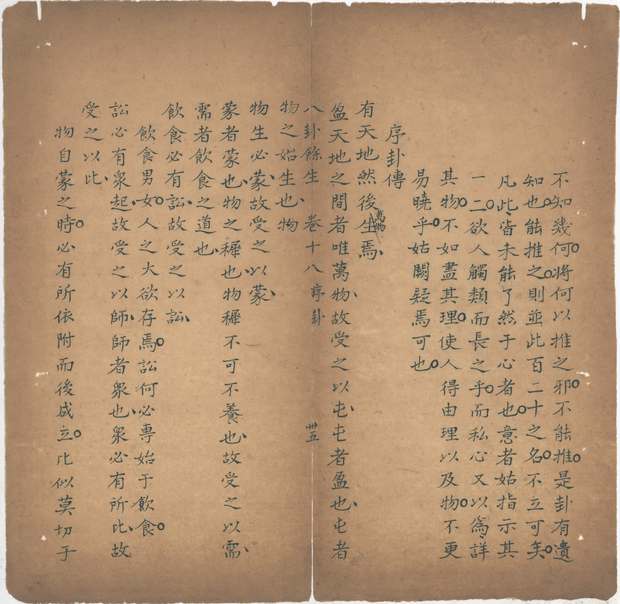 不知幾何將何以推之邪不能推是卦有遺
知也能推之則並此百二十之名不立可矣
凡此皆未能了然于心者也意者姑指示其
一二欲人觸類而長之乎而私心又以為詳
其物不如盡其理使人得由理以及物不更
易曉乎姑闕疑焉可也
序卦傳
有天地然後萬物生焉
盈天地之閒者唯萬物故受之以屯屯者盈也屯者
八卦餘生 卷十八序卦 卅五
物之始生也物
物生必蒙故受之以蒙
蒙者蒙也物之穉也物穉不可不養也故受之以需
需者飲食之道也
飲食必有訟故受之以訟
飲食男女人之大欲存焉訟何必專始于飲食
訟必有衆起故受之以師師者衆也衆必有所比故
受之以比
物自蒙之時必有所依附而後成立比似莫切于